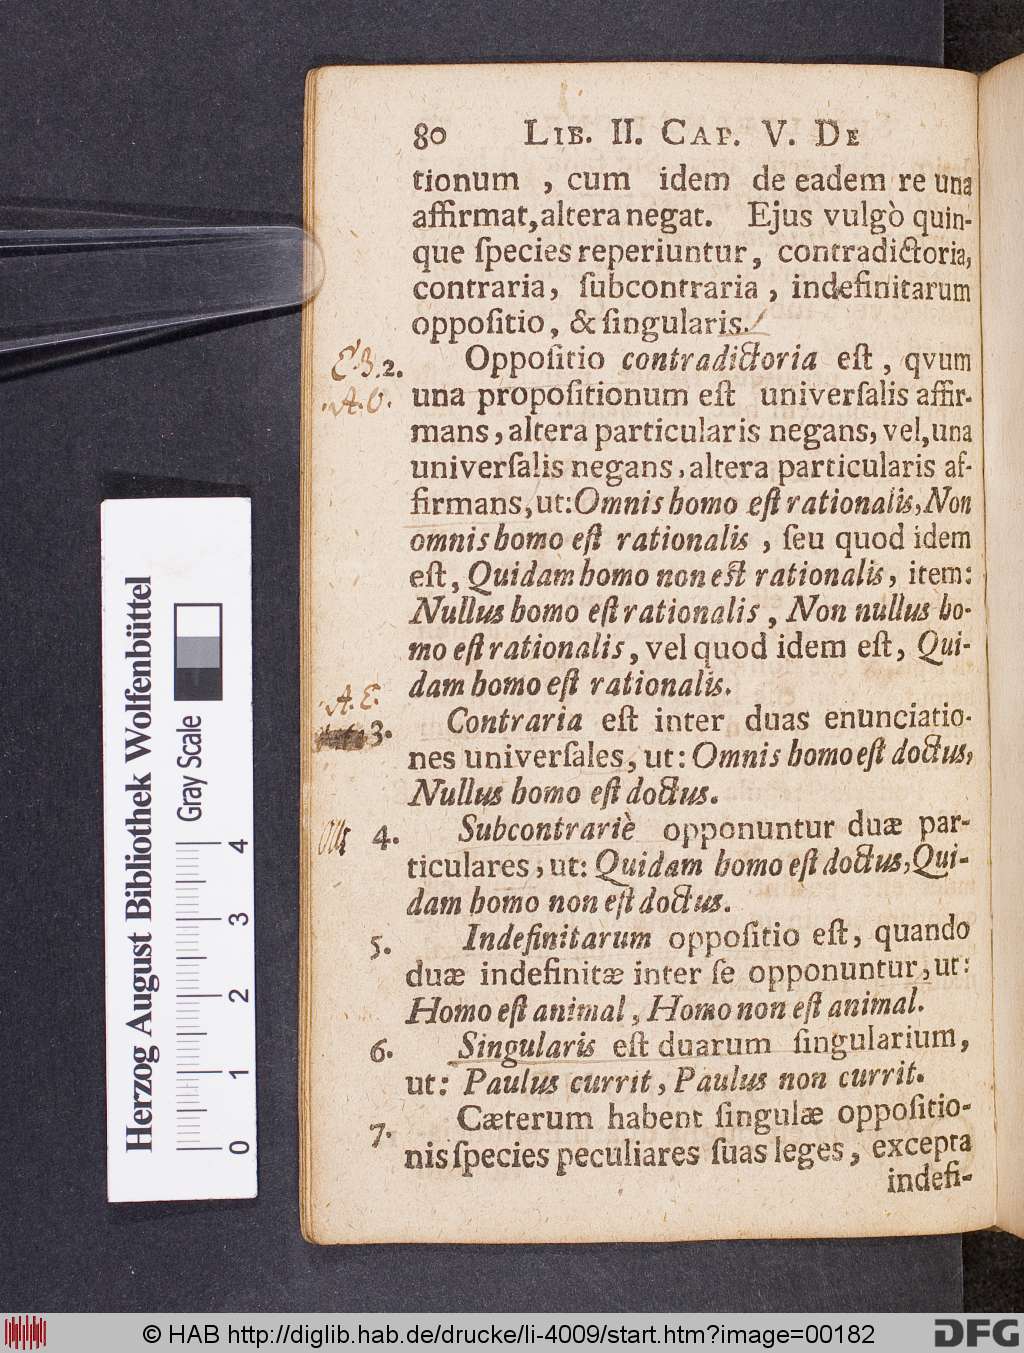 80 LIB. II. CAP. V. DE
tionum , cum idem de eadem re una
affirmat, altera negat. Ejus vulgò quin-
que ſpecies reperiuntur, contradictoria,
contraria, ſubcontraria , indefinitarum
oppoſitio, & ſingularis.
2. Oppoſitio contradictoria eſt , qvum
A. O.
una propoſitionum eſt univerſalis affir-
mans, altera particularis negans, vel, una
univerſalis negans, altera particularis af-
firmans, ut: Omnis homo eſt rationalis, Non
omnis homo eſt rationalis , ſeu quod idem
eſt, Quidam homo non eſt rationalis, item:
Nullus homo eſt rationalis , Non nullus ho-
mo eſt rationalis, vel quod idem eſt, Qui-
dam homo eſt rationalis.
A. E.
3. Contraria eſt inter duas enunciatio-
nes univerſales, ut: Omnis homo eſt doctus,
Nullus homo eſt doctus.
4. Subcontrariè opponuntur duæ par-
ticulares, ut: Quidam homo eſt doctus, Qui-
dam homo non eſt doctus.
5. Indefinitarum oppoſitio eſt, quando
duæ indefinitæ inter ſe opponuntur, ut:
Homo eſt animal, Homo non eſt animal.
6. Singularis eſt duarum ſingularium,
ut: Paulus currit, Paulus non currit.
7. Cæterum habent ſingulæ oppoſitio-
nis ſpecies peculiares ſuas leges, excepta
indefi-
Herzog August Bibliothek Wolfenbüttel
Gray Scale
0 1 2 3 4
© HAB http://diglib.hab.de/drucke/li-4009/start.htm?image=00182
DFG